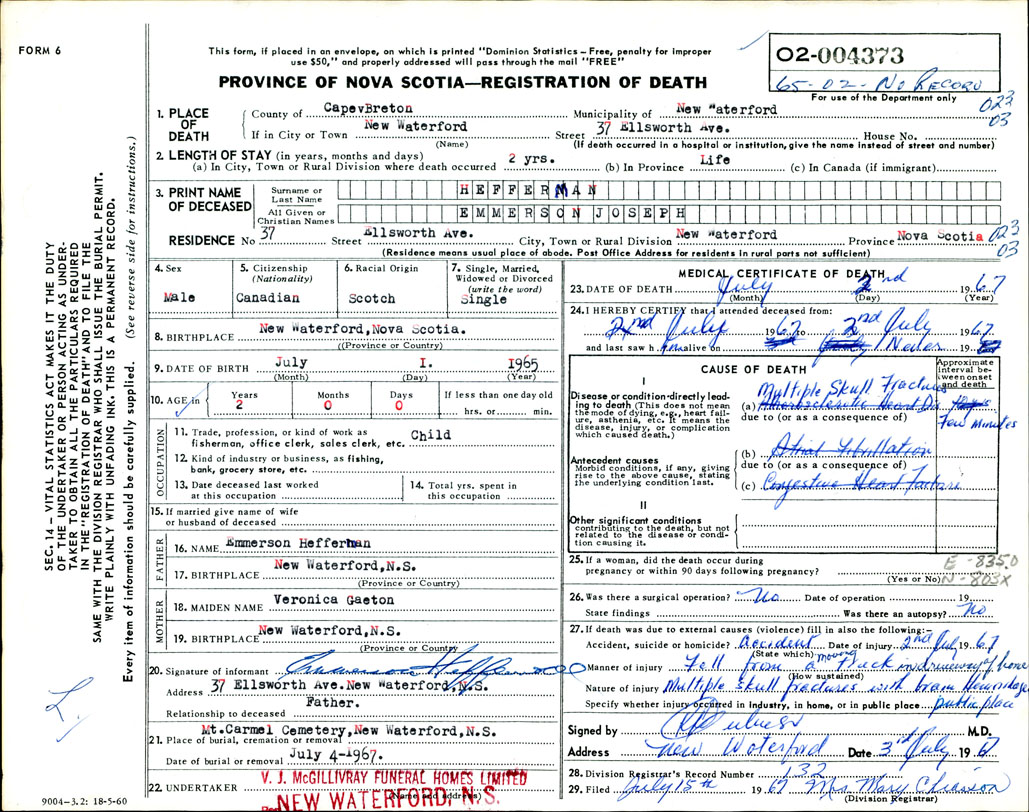 FORM 6
This form, if placed in an envelope, on which is printed "Dominion Statistics – Free, penalty for improper
use $50," and properly addressed will pass through the mail "FREE"
PROVINCE OF NOVA SCOTIA—REGISTRATION OF DEATH
02-004373
65-02- No Record
For use of the Department only
023
03
1. PLACE OF DEATH
County of CapevBreton Municipality of New Waterford
If in City or Town New Waterford Street 37 Ellsworth Ave. House No.
(Name) (If death occurred in a hospital or institution, give the name instead of street and number)
2. LENGTH OF STAY (in years, months and days)
(a) In City, Town or Rural Division where death occurred 2 yrs. (b) In Province Life (c) In Canada (if immigrant)
3. PRINT NAME OF DECEASED
Surname or Last Name HEFFERMAN
All Given or Christian Names EMMERSON JOSEPH
RESIDENCE No 37 Street Ellsworth Ave. City, Town or Rural Division New Waterford Province Nova Scotia 023
03
(Residence means usual place of abode. Post Office Address for residents in rural parts not sufficient)
4. Sex
Male
5. Citizenship
(Nationality)
Canadian
6. Racial Origin
Scotch
7. Single, Married,
Widowed or Divorced
(write the word)
Single
8. BIRTHPLACE New Waterford,Nova Scotia.
((Province or Country)
9. DATE OF BIRTH July I. I965
(Month) (Day) (Year)
10. AGE in Years Months Days If less than one day old
2 0 0 hrs. or min.
OCCUPATION
11. Trade, profession, or kind of work as
fisherman, office clerk, sales clerk, etc. Child
12. Kind of industry or business, as fishing,
bank, grocery store, etc.
13. Date deceased last worked
at this occupation
14. Total yrs. spent in
this occupation
15. If married give name of wife
or husband of deceased
FATHER
16. NAME Emmerson Hefferhan
17. BIRTHPLACE New Waterford,N.S.
(Province or Country)
MOTHER
18. MAIDEN NAME Veronica Gaeton
19. BIRTHPLACE New Waterford,N.S.
(Province or Country)
20. Signature of informant
Address 37 Ellsworth Ave.New Waterford,N.S.
Relationship to deceased Father.
Mt.Carmel Cemetery,New Waterford,N.S.
21. Place of burial, cremation or removal
Date of burial or removal July 4-1967.
22. UNDERTAKER
V. J. McGILLIVRAY FUNERAL HOMES LIMITED
(Name and address)
NEW WATERFORD, N. S.
MEDICAL CERTIFICATE OF DEATH
23. DATE OF DEATH July 2nd 1967
(Month) (Day) (Year)
24. I HEREBY CERTIFY that I attended deceased from:
2nd July 1967 to 2nd July 1967
and last saw him alive on Never 19
CAUSE OF DEATH
Approximate
interval be-
tween onset
and death
I
Disease or condition directly lead-
ing to death (This does not mean
the mode of dying, e.g., heart fail-
ure, asthenia, etc. It means the
disease, injury, or complication
which caused death.)
Multiple Skull Fracture
(a) Arteriosclerotic Heart Dis
due to (or as a consequence of) Few Minutes
Antecedent causes
Morbid conditions, if any, giving
rise to the above cause, stating
the underlying condition last.
(b) Atrial Fibrillation
due to (or as a consequence of)
(c) Congestive Heart Failure
II
Other significant conditions
contributing to the death, but not
related to the disease or condi-
tion causing it.
25. If a woman, did the death occur during
pregnancy or within 90 days following pregnancy?
(Yes or No)
E-835.0
N-803X
26. Was there a surgical operation? No Date of operation 19
State findings Was there an autopsy? No
27. If death was due to external causes (violence) fill in also the following:–
Accident, suicide or homicide? Accident Date of injury 2nd July 1967
(State which)
Manner of injury Fell from a moving truck in driveway of home
(How sustained)
Nature of injury Multiple skull fractures with brain Hemorrhage
Specify whether injury occurred in industry, in home, or in public place public place
Signed by M.D.
Address New Waterford Date 3rd July 1967
28. Division Registrar's Record Number 132
29. Filed July 15th 1967 Mrs Mary Chiasson
(Division Registrar)
SEC. 14 – VITAL STATISTICS ACT MAKES IT THE DUTY
OF THE UNDERTAKER OR PERSON ACTING AS UNDER-
TAKER TO OBTAIN ALL THE PARTICULARS REQUIRED
IN THE "REGISTRATION OF DEATH" AND TO FILE THE
SAME WITH THE DIVISION REGISTRAR WHO SHALL ISSUE THE BURIAL PERMIT.
WRITE PLAINLY WITH UNFADING INK. THIS IS A PERMANENT RECORD.
Every item of information should be carefully supplied. (See reverse side for instructions.)
9004-3.2: 18-5-60